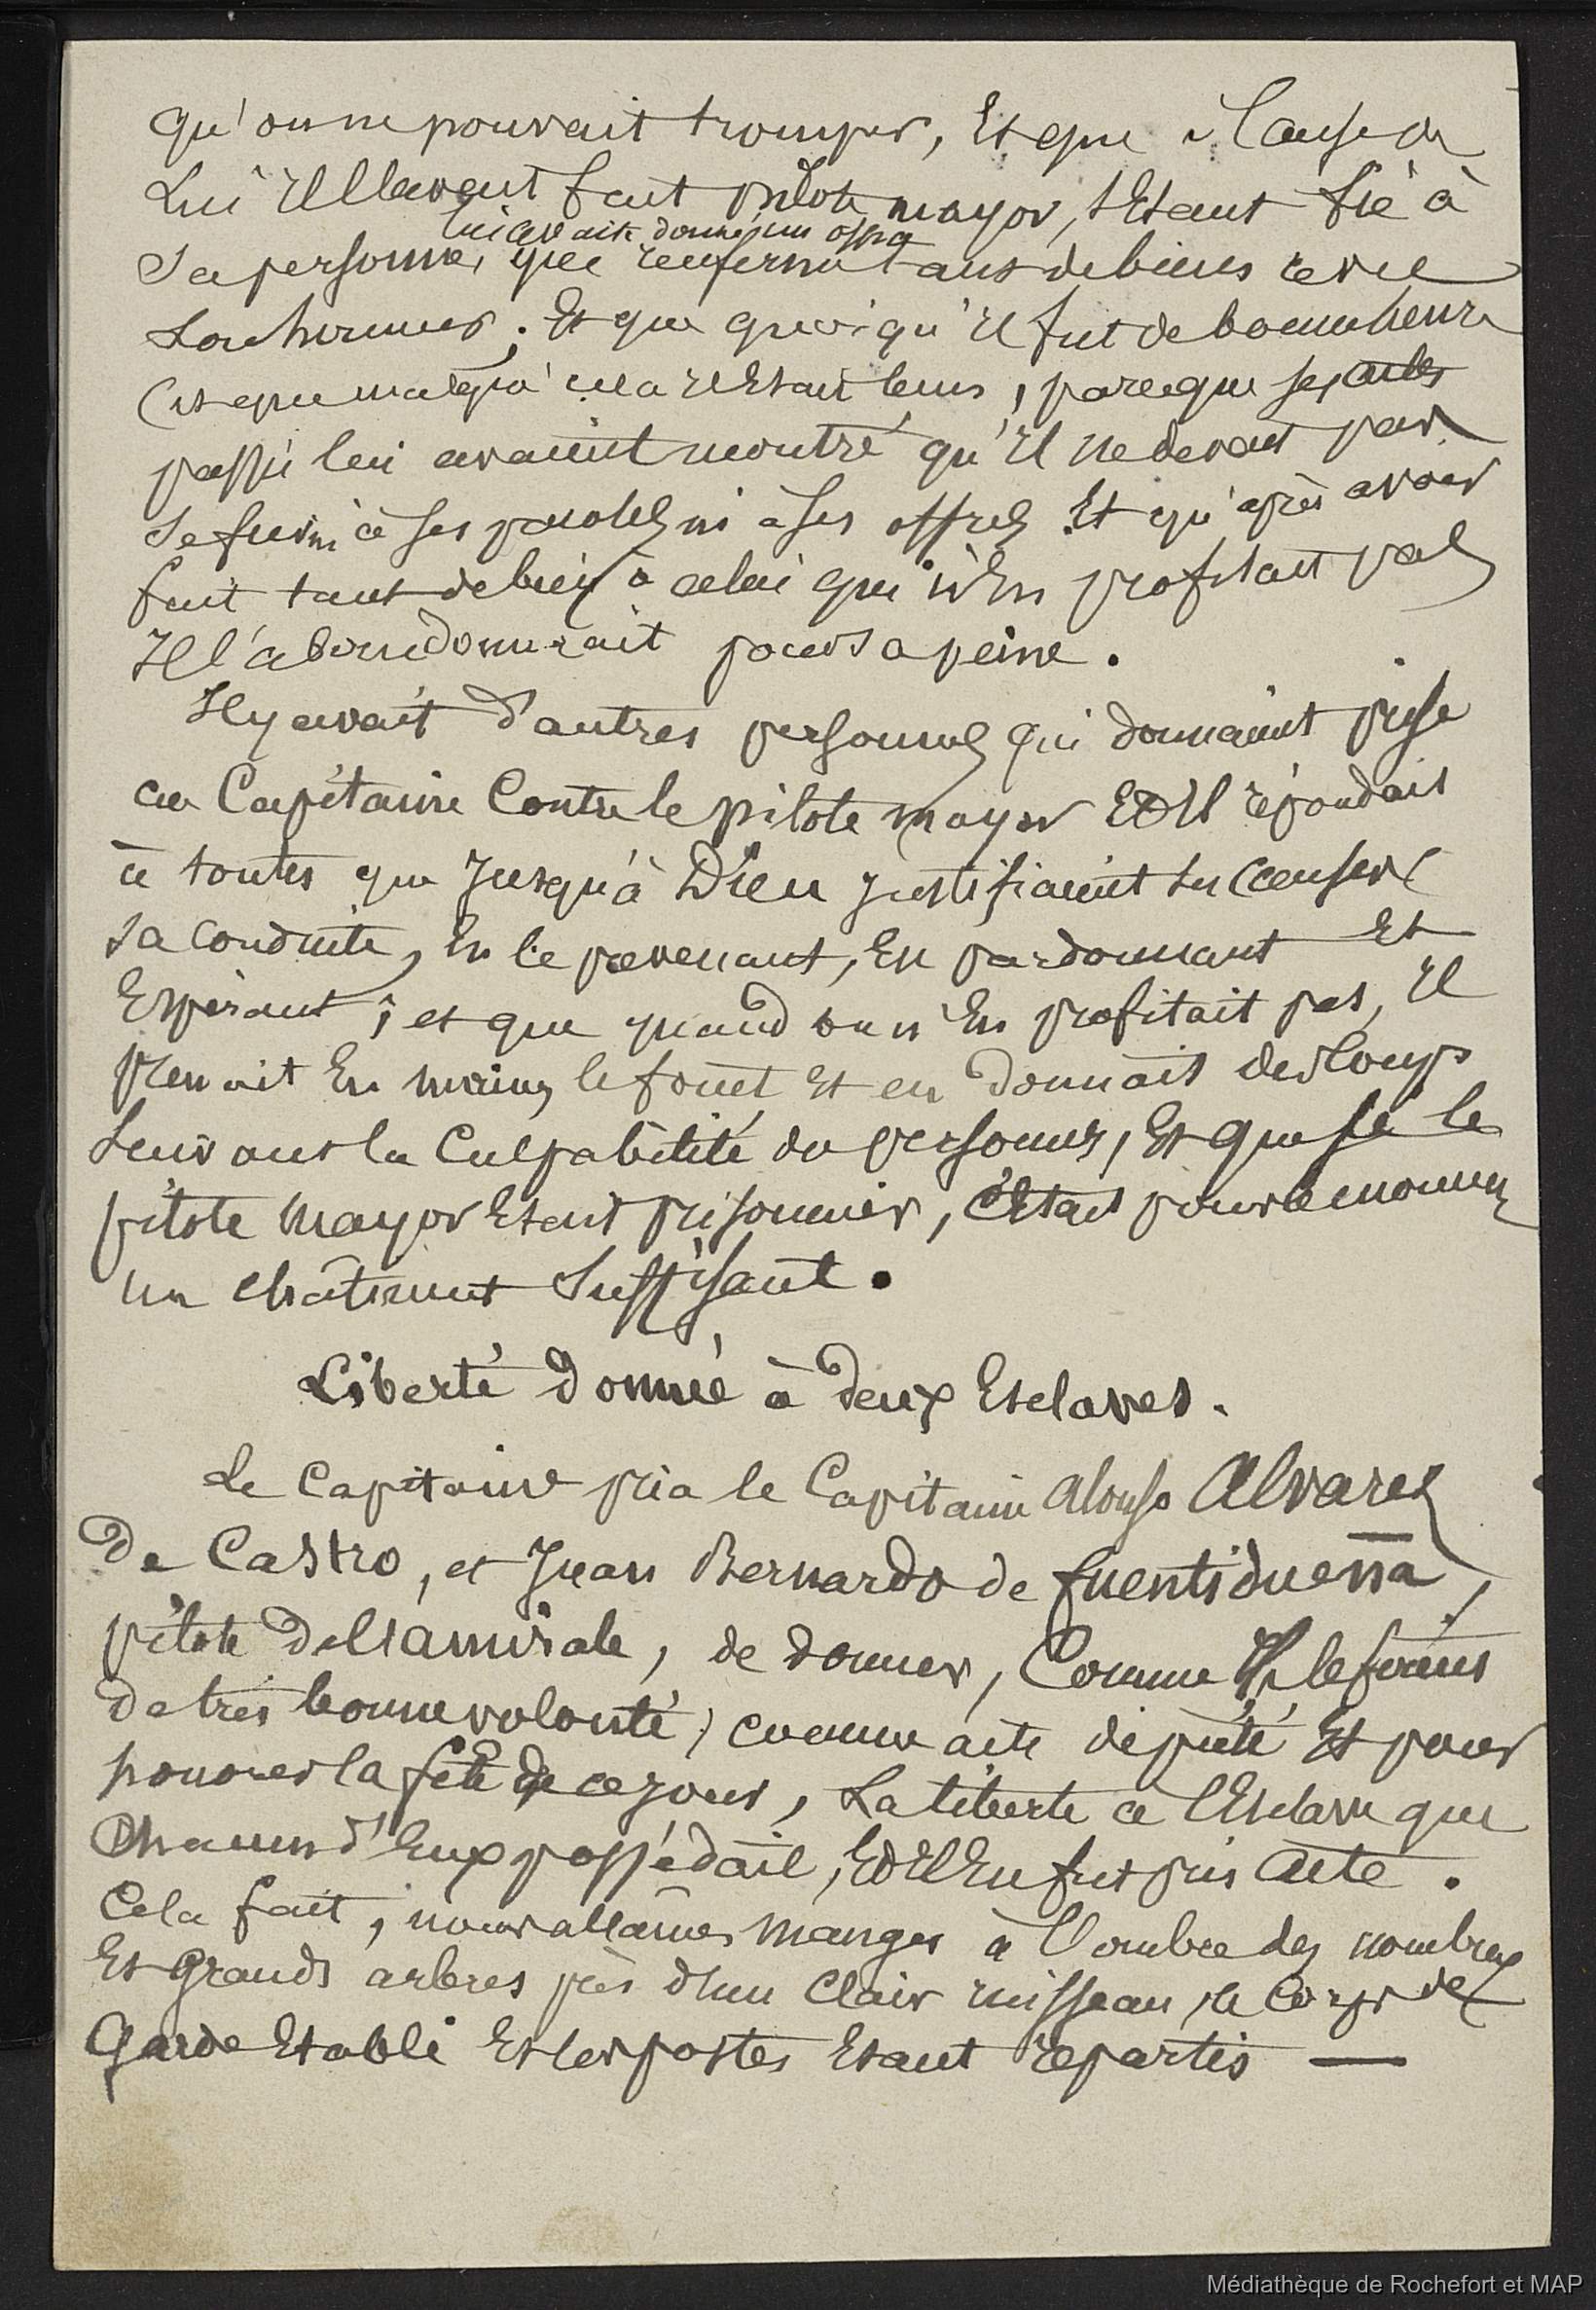 qu'on ne pouvait tromper, Et que à Cause de
Lui Il l'avait fait pilote mayor, s'Etant fié à
lui avait donné
Sa personne, tant de biens
son honneur ; Et que quoiqu'il fut de bonne heure
Et que malgré cela il Etait , parceque ses actes
passés lui avaient montré qu'il ne devait pas
se fier ni à ses paroles ni à ses offres Et qu'après avoir
fait tant de bien à celui qui n'En profitait pas
Il l'abandonnerait pour sa peine.
Il y avait d'autres personnes qui donnaient prise
au Capitaine Contre le pilote mayor Et Il répondait
à toutes que Jusqu'à Dieu
sa conduite, En le prévenant, En pardonnant Et
Espérant ; et que quand on n'En profitait pas, Il
prenait En mains le fouet Et en donnait des Coups
Suivant la Culpabilité des personnes, Et que si le
pilote mayor Etait prisonnier, c'Etait pour le moment
un châtiment Suffisant.
Liberté donnée à deux Esclaves.
Le Capitaine pria le Capitaine Alonso Alvarez
De Castro, et Juan Bernardo de fuentiduenna,
pilote de l'amirale, de donner, Comme Ils le firent
de très bonne volonté, comme acte de piété Et pour
honorer la fête de ce jour, La liberté à l'Esclave que
Chacun d'Eux possédait, Et Il En fut pris Acte.
Cela fait, nous allâmes manger à l'ombre des nombreux
Et Grands arbres près d'un Clair ruisseau, le Corps de
Garde Etabli Et les postes Etant repartis —
Médiathèque de Rochefort et MAP